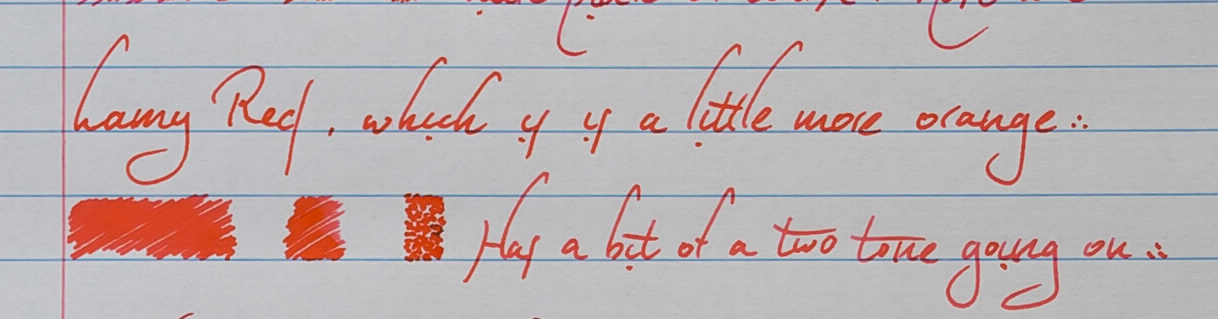 Lamy Red, which is is a little more orange ∴
Has a bit of a two tone going on ∴